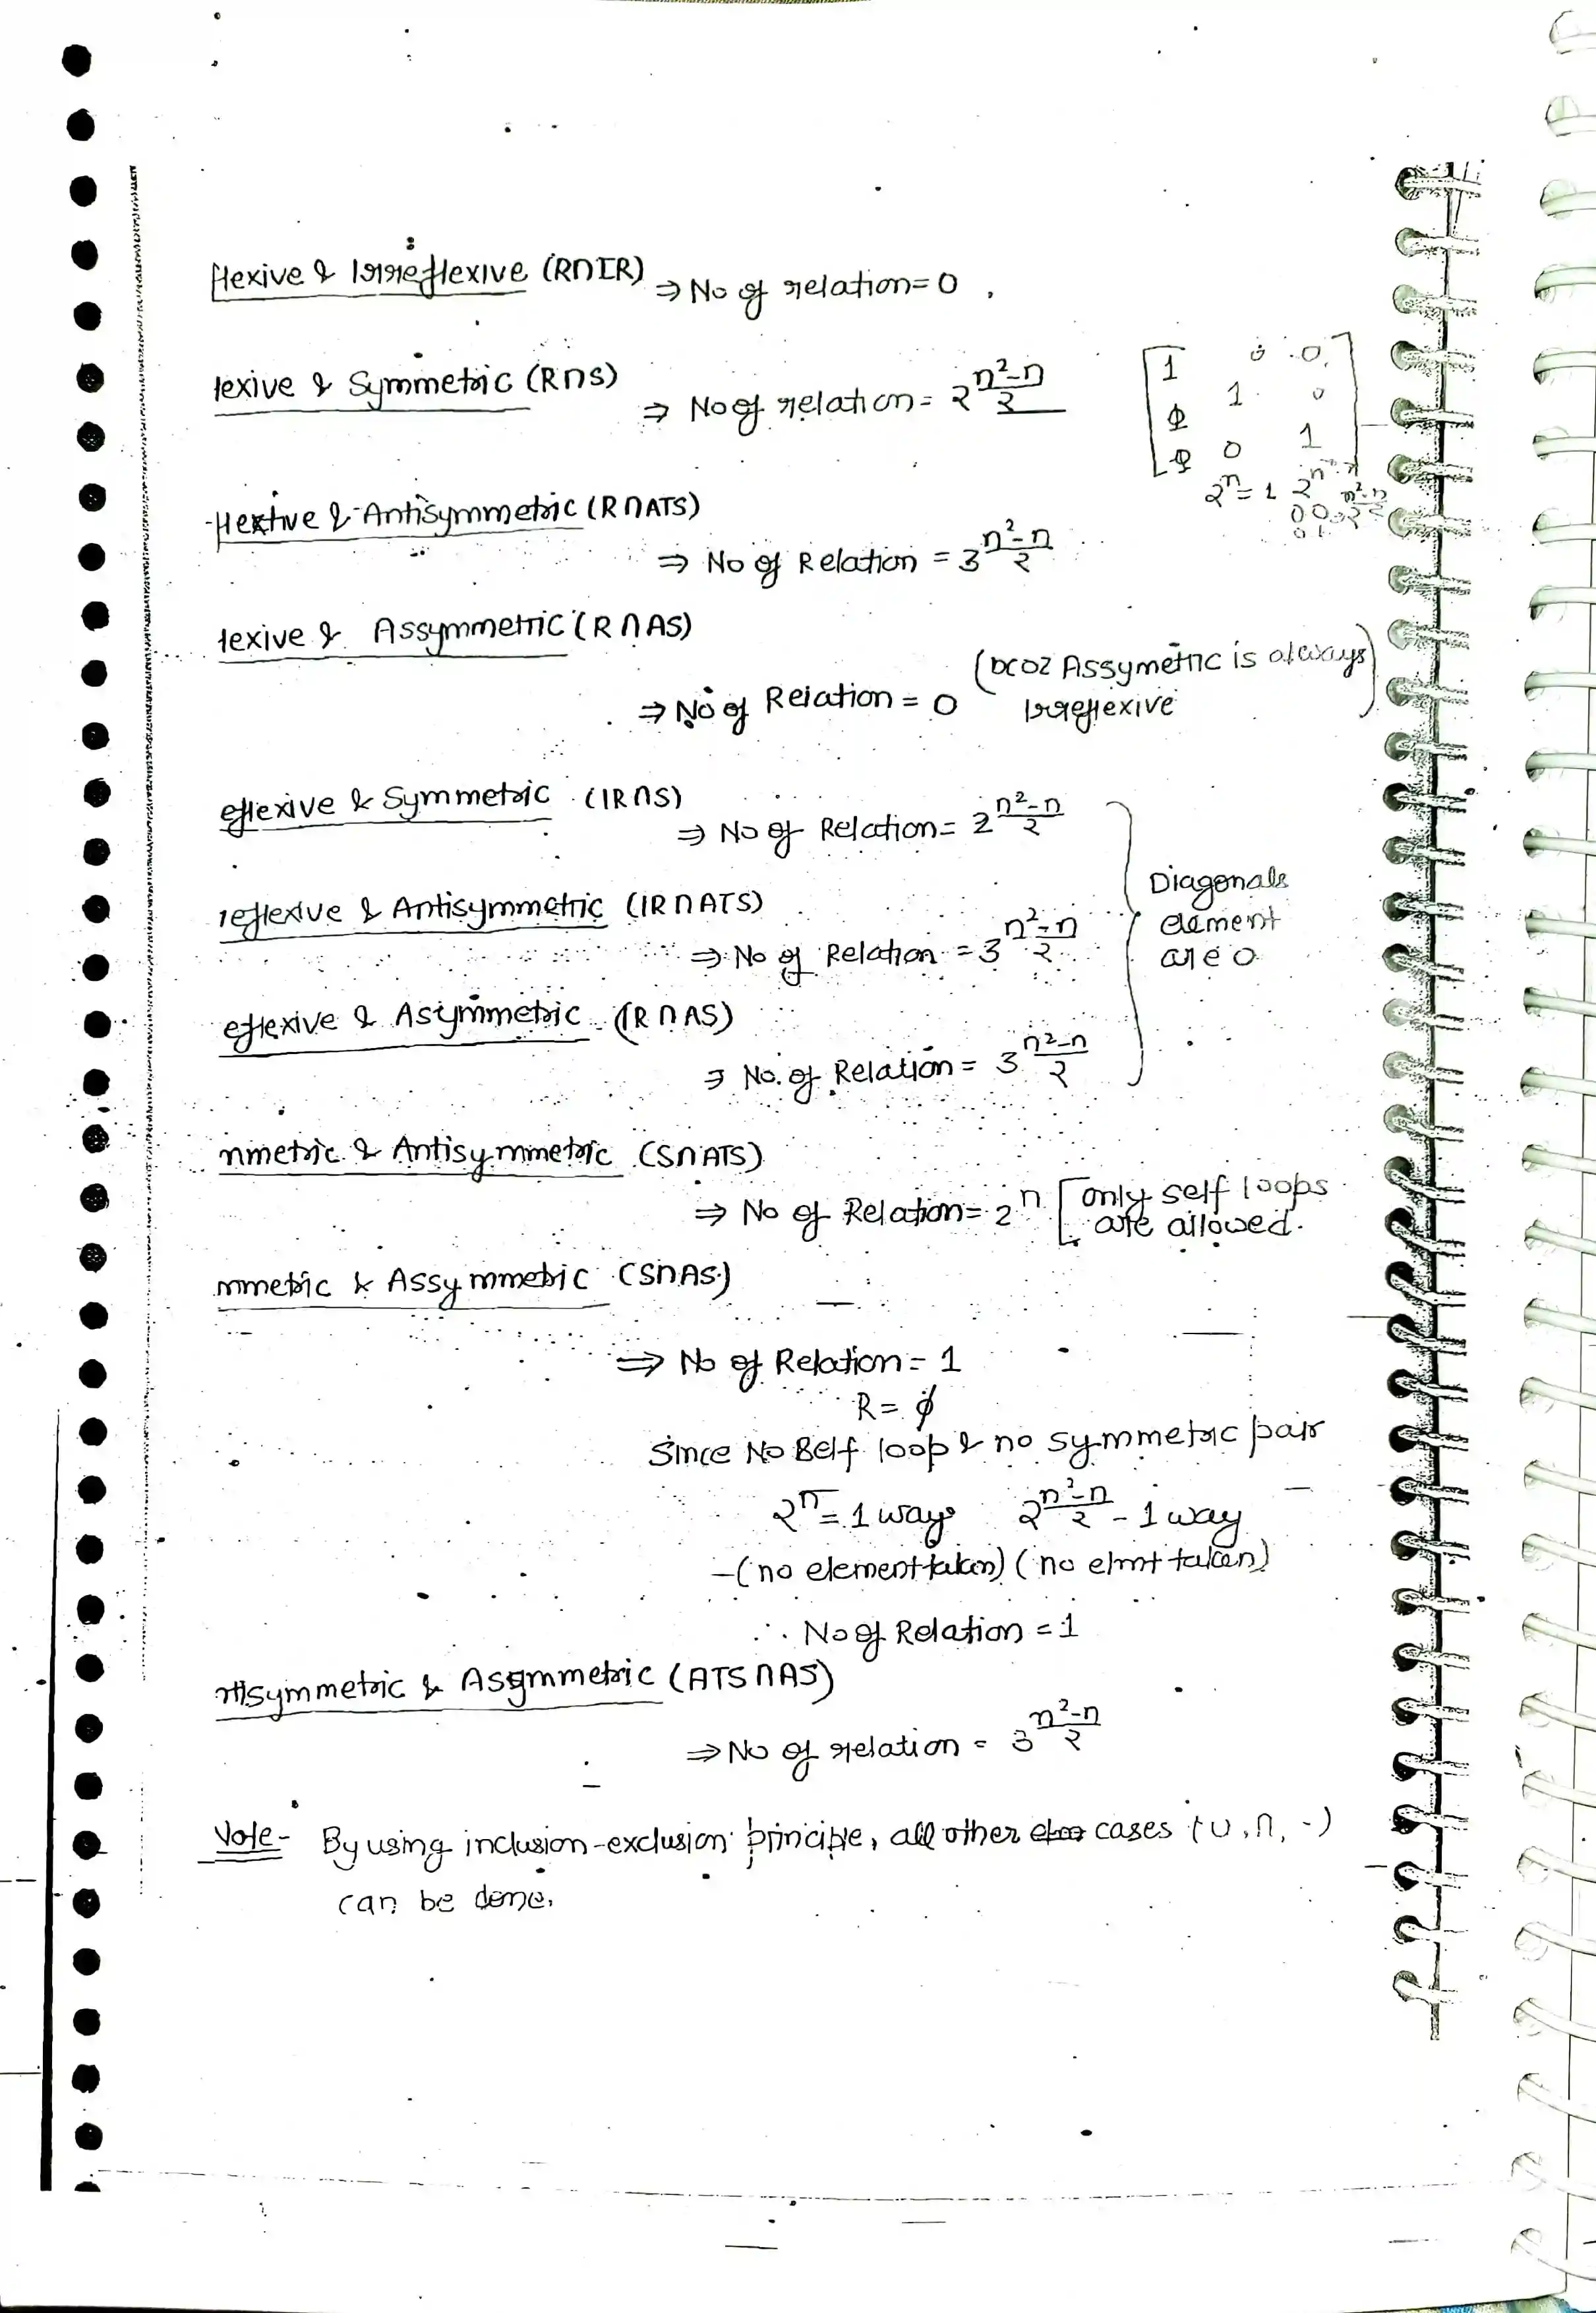 flexive & Irreflexive (R∩IR) ⇒ No of relation = 0
lexive & Symmetric (R∩S)
⇒ No of relation = 2^((n²-n)/2)
1 0 0
1 0
0 1
2^n = 1
flexive & Antisymmetric (R∩ATS)
⇒ No of Relation = 3^((n²-n)/2)
lexive & Assymmetric (R∩AS)
⇒ No of Relation = 0 (bcoz Assymetric is always
Irreflexive)
eflexive & Symmetric (IR∩S)
⇒ No of Relation = 2^((n²-n)/2)
reflexive & Antisymmetric (IR∩ATS)
⇒ No of Relation = 3^((n²-n)/2)
eflexive & Asymmetric (IR∩AS)
⇒ No. of Relation = 3^((n²-n)/2)
Diagonals
element
are 0
mmetric & Antisymmetric (S∩ATS)
⇒ No of Relation = 2^n [only self loops
are allowed.
mmetric & Assymmetric (S∩AS)
⇒ No of Relation = 1
R = ϕ
Since No Self loop & no symmetric pair
2^n = 1 ways 2^((n²-n)/2) - 1 way
(no element taken) (no elmt taken)
∴ No of Relation = 1
ntisymmetric & Asymmetric (ATS∩AS)
⇒ No of relation = 3^((n²-n)/2)
Note- By using inclusion-exclusion principle, all other cases (∪, ∩, -)
can be done.